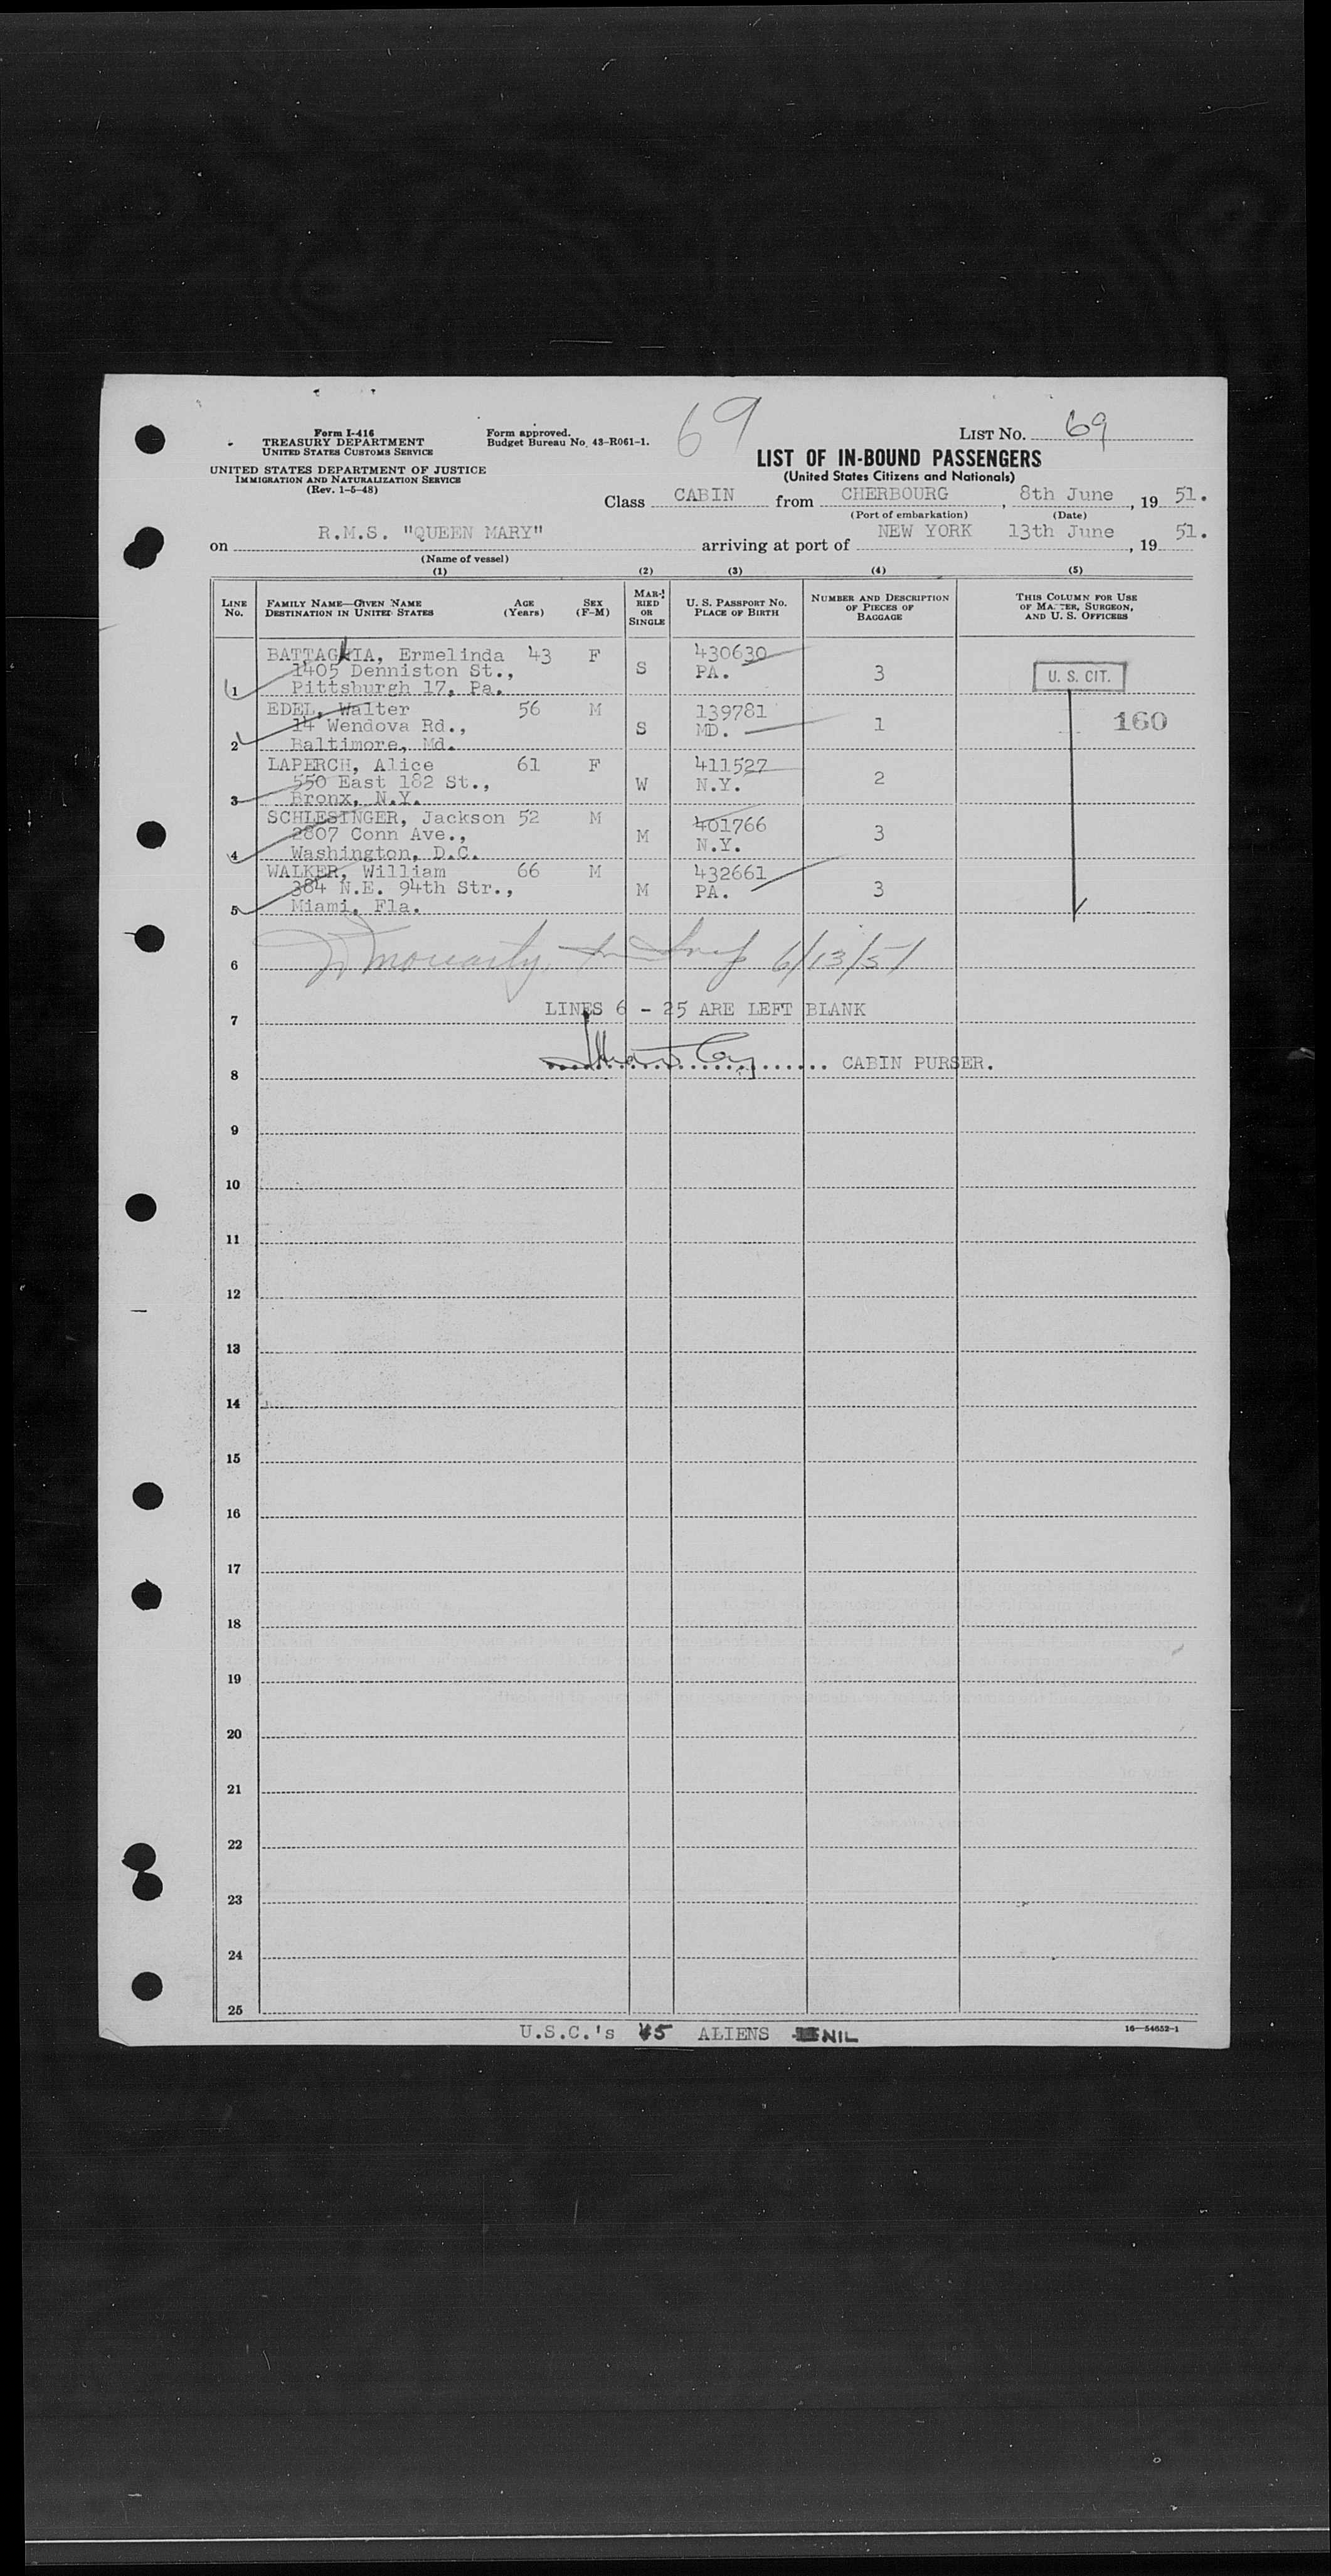 69
Form I-416
TREASURY DEPARTMENT
UNITED STATES CUSTOMS SERVICE
UNITED STATES DEPARTMENT OF JUSTICE
IMMIGRATION AND NATURALIZATION SERVICE
(Rev. 1-5-48)
Form approved.
Budget Bureau No. 43-R061-1.
LIST NO. 69
LIST OF IN-BOUND PASSENGERS
(United States Citizens and Nationals)
Class CABIN from CHERBOURG, 8th June, 19 51.
(Port of embarkation) (Date)
on R.M.S. "QUEEN MARY" arriving at port of NEW YORK 13th June, 19 51.
(Name of vessel)
(1) (2) (3) (4) (5)
LINE NO. FAMILY NAME—GIVEN NAME DESTINATION IN UNITED STATES AGE (Years) SEX (F-M) MARRIED OR SINGLE U. S. PASSPORT NO. PLACE OF BIRTH NUMBER AND DESCRIPTION OF PIECES OF BAGGAGE THIS COLUMN FOR USE OF MASTER, SURGEON, AND U. S. OFFICERS
BATTAGLIA, Ermelinda 43 F 430630
1405 Denniston St., S PA. 3 U. S. CIT.
1 Pittsburgh 17, Pa.
EDEL, Walter 56 M 139781
14 Wendova Rd., S MD. 1 160
2 Baltimore, Md.
LAPERCH, Alice 61 F 411527
550 East 182 St., W N.Y. 2
3 Bronx, N.Y.
SCHLESINGER, Jackson 52 M 401766
2807 Conn Ave., M N.Y. 3
4 Washington, D.C.
WALKER, William 66 M 432661
384 N.E. 94th Str., M PA. 3
5 Miami, Fla.
6 Moriarty 6/13/51
LINES 6 - 25 ARE LEFT BLANK
7
CABIN PURSER.
8
9
10
11
12
13
14
15
16
17
18
19
20
21
22
23
24
25
U.S.C.'s 5 ALIENS NIL
16—54652-1